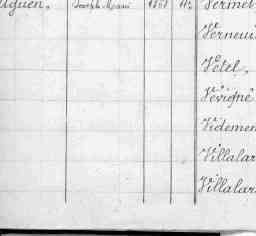 Joseph Marie 1861 112 Vermel
Verneui
Vétel,
Vévigné
Videmen
Villalar
Villalar